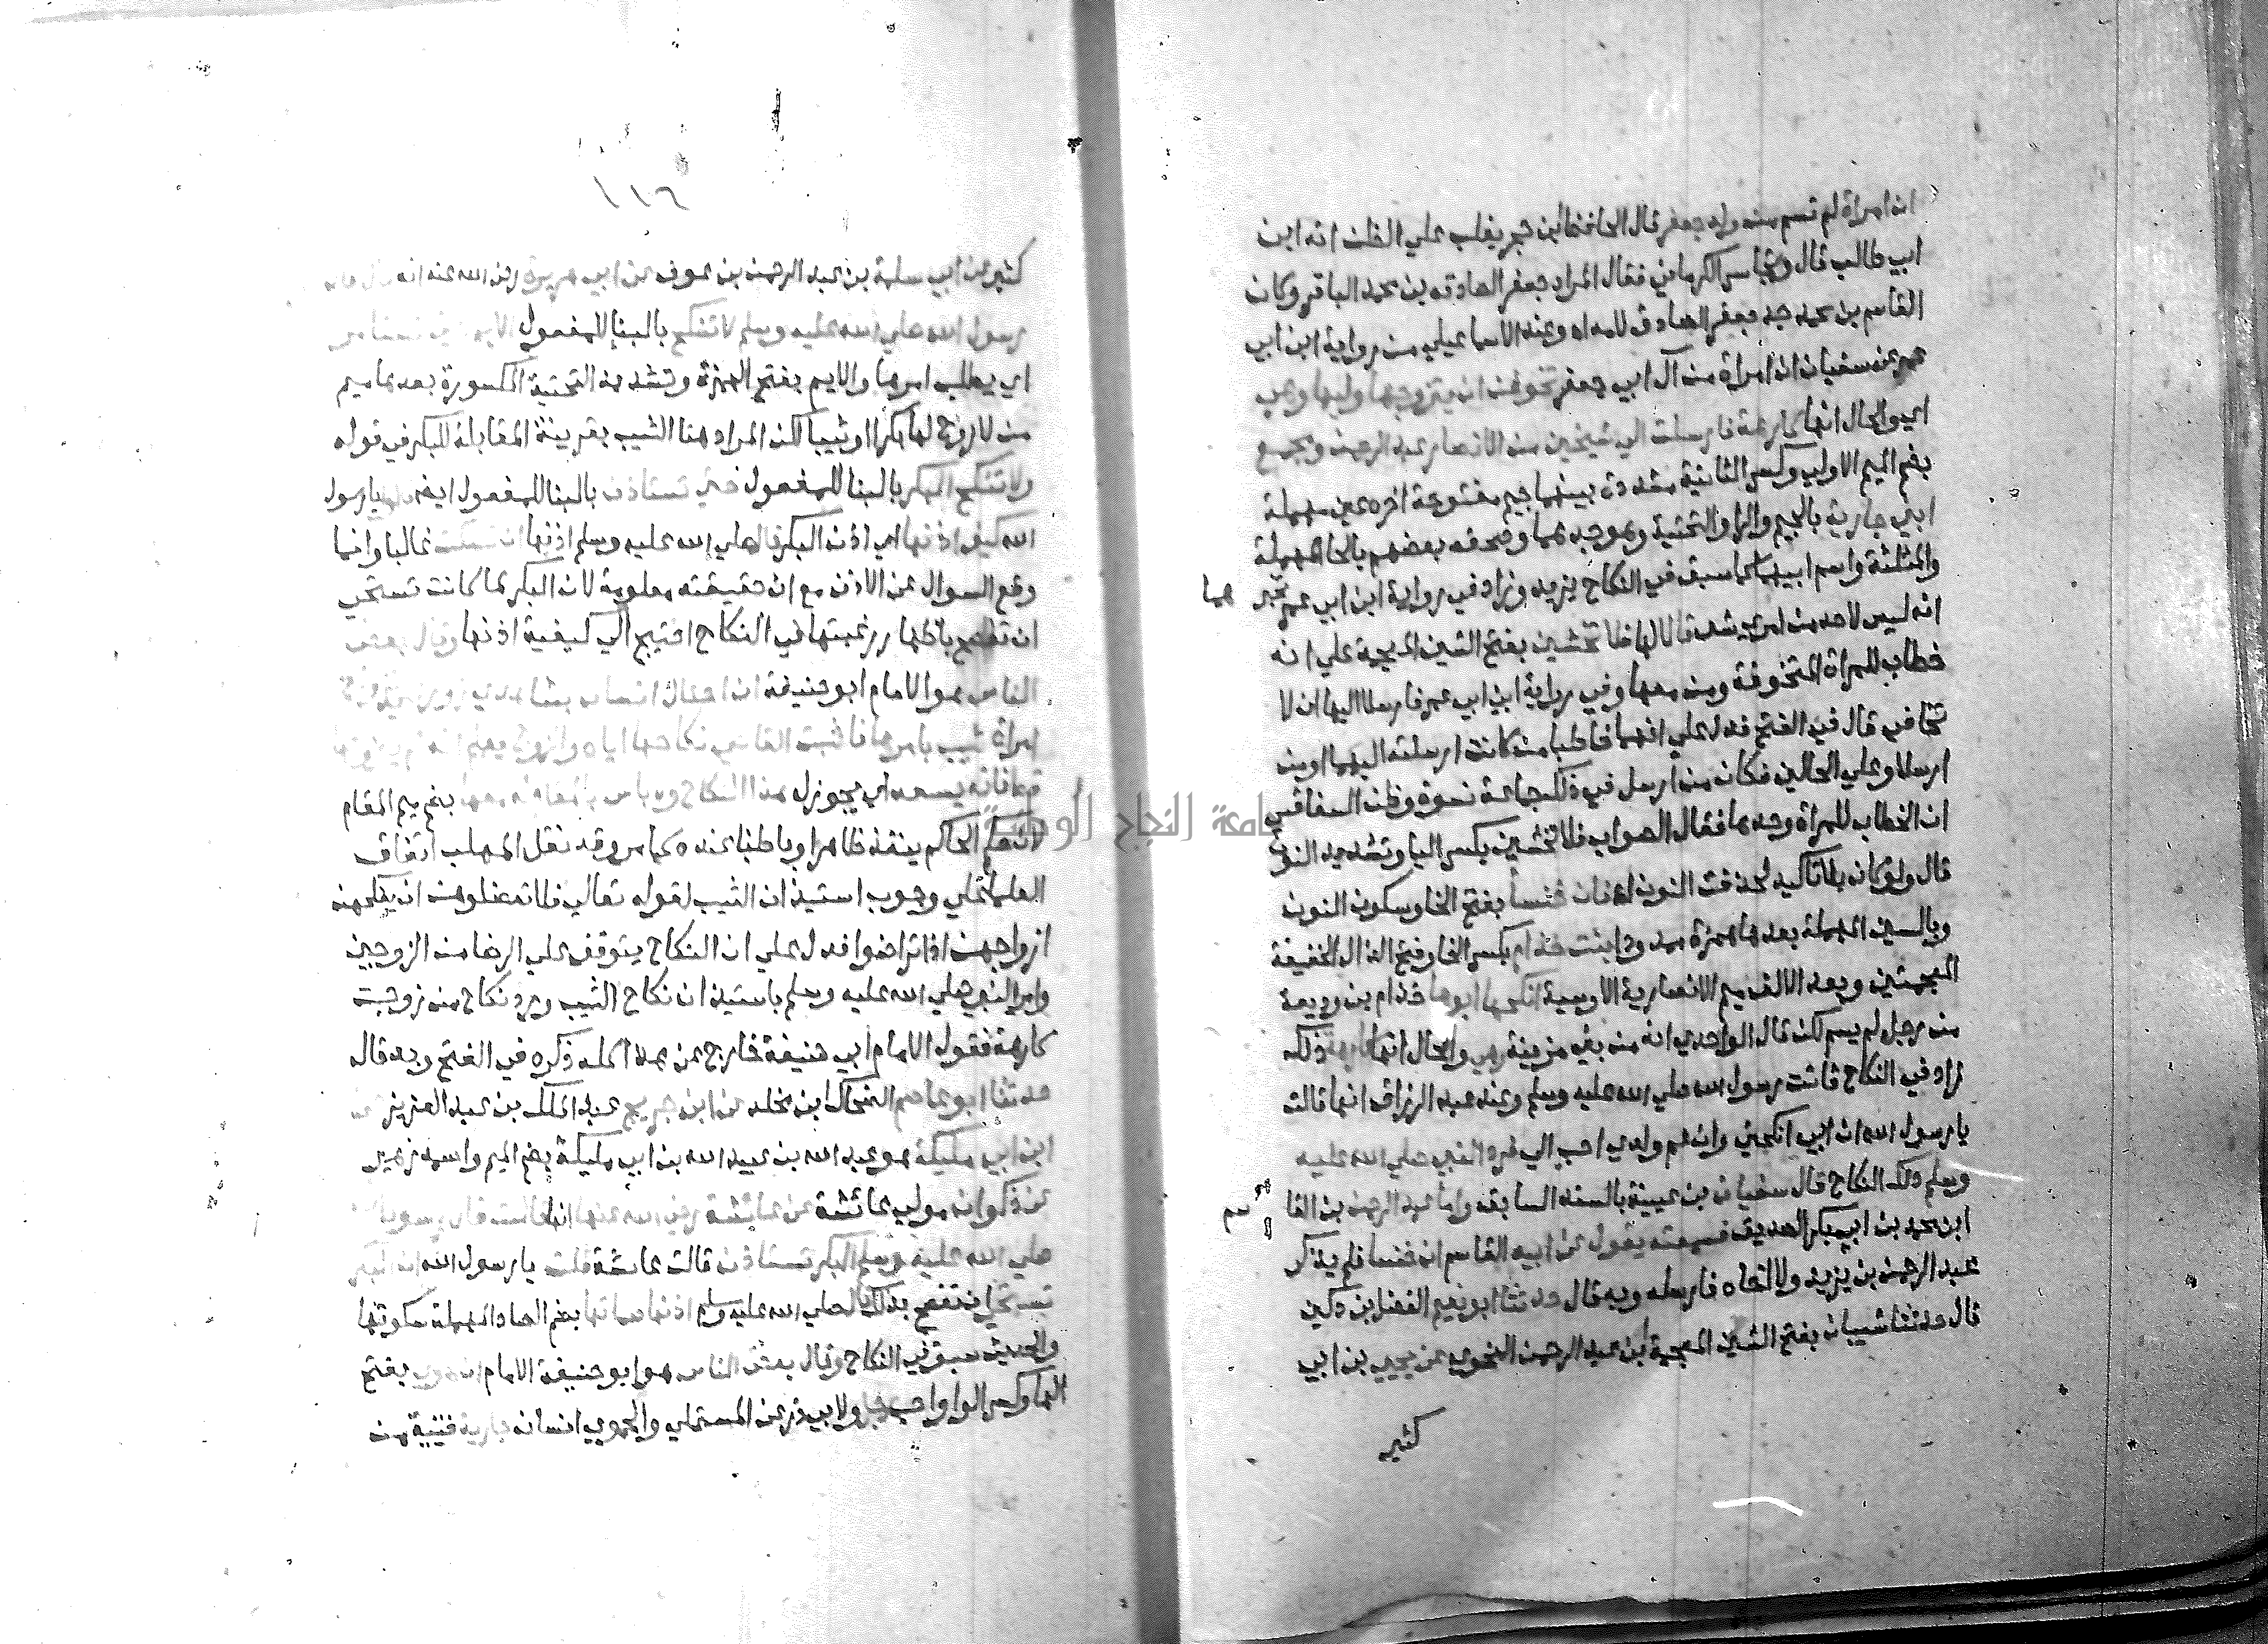 ان امراة لم تسم من ولد جعفر قال الحافظ ابن حجر يغلب علي الظن انه ابن
ابي طالب قال وتجاسر الكرماني فقال المراد جعفر الصادق بن محمد الباقر وكان
القاسم بن محمد جد جعفر الصادق لامه اه وعند الاسماعيلي من رواية ابن ابي
عمر عن سفيان ان امراة من آل ابي جعفر تخوفت ان يتزوجها وليها وهي
اي والحال انها كارهة فارسلت الي شيخين من الانصار عبد الرحمن ومجمع
بضم الميم الاولي وكسر الثانية مشددة بينهما جيم مفتوحة اخره عين مهملة
ابني جارية بالجيم والرا والتحتية وهو جدهما وصحفه بعضهم بالحا المهملة
والمثلثة واسم ابيهما كما سبق في النكاح يزيد وزاد في رواية ابن ابي عمر تخبرهما
انه ليس لاحد من امري شي قالا لها فلا تخشين بفتح الشين المعجمة علي انه
خطاب للمراة المتخوفة ومن معها وفي رواية ابن ابي عمر فارسلا اليها ان لا
تخافي قال في الفتح فدل علي انهما خاطبا من كانت ارسلته اليهما او من
ارسلا وعلي الحالين فكان من ارسل في ذلك جماعة نسوة وظن السفاقسي
ان الخطاب للمراة وحدها فقال الصواب فلا تخشين بكسر اليا وتشديد النون
قال ولو كان بلا تاكيد لحذفت النون فان خنسا بفتح الخا وسكون النون
وبالسين المهملة بعدها همزة ممدودا بنت خذام بكسر الخا وفتح الذال الخفيفة
المعجمتين وبعد الالف ميم الانصارية الاوسية انكحها ابوها خذام بن وديعة
من رجل لم يسم لكن قال الواحدي انه من بني مزينة وهي والحال انها كارهة ذلك
زاد في النكاح فاتت رسول الله صلي الله عليه وسلم وعند عبد الرزاق انها قالت
يا رسول الله ان ابي انكحني وان عم ولدي احب الي فرد النبي صلي الله عليه
وسلم ذلك النكاح قال سفيان بن عيينة بالسند السابق واما عبد الرحمن بن القاسم
ابن محمد بن ابي بكر الصديق فسمعته يقول عن ابيه القاسم ان خنسا فلم يذكر
عبد الرحمن بن يزيد ولا اخاه فارسله وبه قال حدثنا ابو نعيم الفضل بن دكين
قال حدثنا شيبان بفتح الشين المعجمة بن عبد الرحمن النحوي عن يحيي بن ابي
كثير
١١٦
كثير عن ابي سلمة بن عبد الرحمن بن عوف عن ابي هريرة رضي الله عنه انه قال قال
رسول الله صلي الله عليه وسلم لا تنكح بالبنا للمفعول الايم
اي يطلب امرها والايم بفتح الهمزة وتشديد التحتية المكسورة بعدها ميم
من لا زوج لها بكرا او ثيبا لكن المراد هنا الثيب بقرينة المقابلة للبكر في قوله
ولا تنكح البكر بالبنا للمفعول حتي تستاذن بالبنا للمفعول ايضا يا رسول
الله كيف اذنها اي اذن البكر قال صلي الله عليه وسلم اذنها ان تسكت غالبا وانما
وقع السوال عن الاذن مع ان حقيقته معلومة لان البكر لما كانت تستحي
ان تفصح باظهار رغبتها في النكاح احتيج الي كيفية اذنها وقال بعض
الناس هو الامام ابو حنيفة ان احتال انسان بشاهدي زور علي تزويج
امراة ثيب بامرها فاثبت القاضي نكاحها اياه والزوج يعلم انه لم يتزوجها
قط فانه يسعه اي يجوز له هذا النكاح ولا باس بالمقام معها بضم ميم المقام
لان حكم الحاكم ينفذ ظاهرا وباطنا عنده كما مر وقد نقل المهلب اتفاق
العلما علي وجوب استيذان الثيب لقوله تعالي فلا تعضلوهن ان ينكحهن
ازواجهن اذا تراضوا فدل علي ان النكاح يتوقف علي الرضا من الزوجين
وامر النبي صلي الله عليه وسلم باستيذان نكاح الثيب ورد نكاح من زوجت
كارهة فقول الامام ابي حنيفة خارج عن هذا كله ذكره في الفتح وبه قال
حدثنا ابو عاصم الضحاك ابن مخلد عن ابن جريج عبد الملك بن عبد العزيز عن
ابن ابي مليكة هو عبد الله بن عبيد الله بن ابي مليكة بضم الميم واسمه زهير
عن ذكوان مولي عائشة عن عائشة رضي الله عنها انها قالت قال رسول الله
صلي الله عليه وسلم البكر تستاذن قالت عائشة قلت يا رسول الله ان البكر
تستحي ان تفصح بذلك قال صلي الله عليه وسلم اذنها صماتها بضم الصاد المهملة سكوتها
والحديث سبق في النكاح وقال بعض الناس هو ابو حنيفة الامام ان هوي بفتح
الها وكسر الواو احب رجل ولابي ذر عن المستملي والحموي انسان جارية فتية من